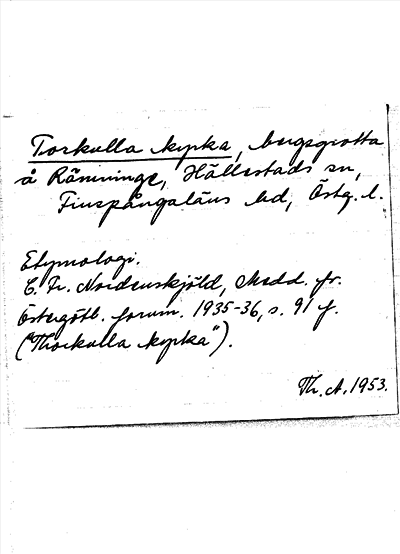 Torkulla kyrka, bergsgrotta
å Rämninge, Hällestads sn,
Finspångaläns hd, Östg. l.
Etymologi.
C. Fr. Nordenskjöld, Medd. fr.
Östergötl. fornm. 1935-36, s. 91 f.
("Thorkulla kyrka").
Th. A. 1953.